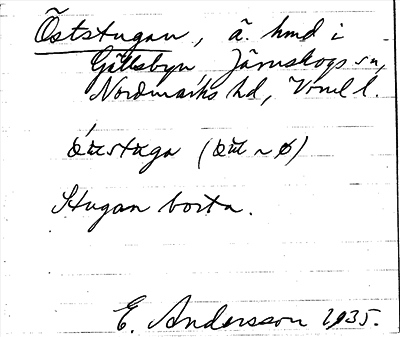 Öststugan, ä. hmd i
Gällsbyn Järnskogs sn,
Nordmarks hd, Vrml l.
Stugan borta.
E. Andersson 1935.